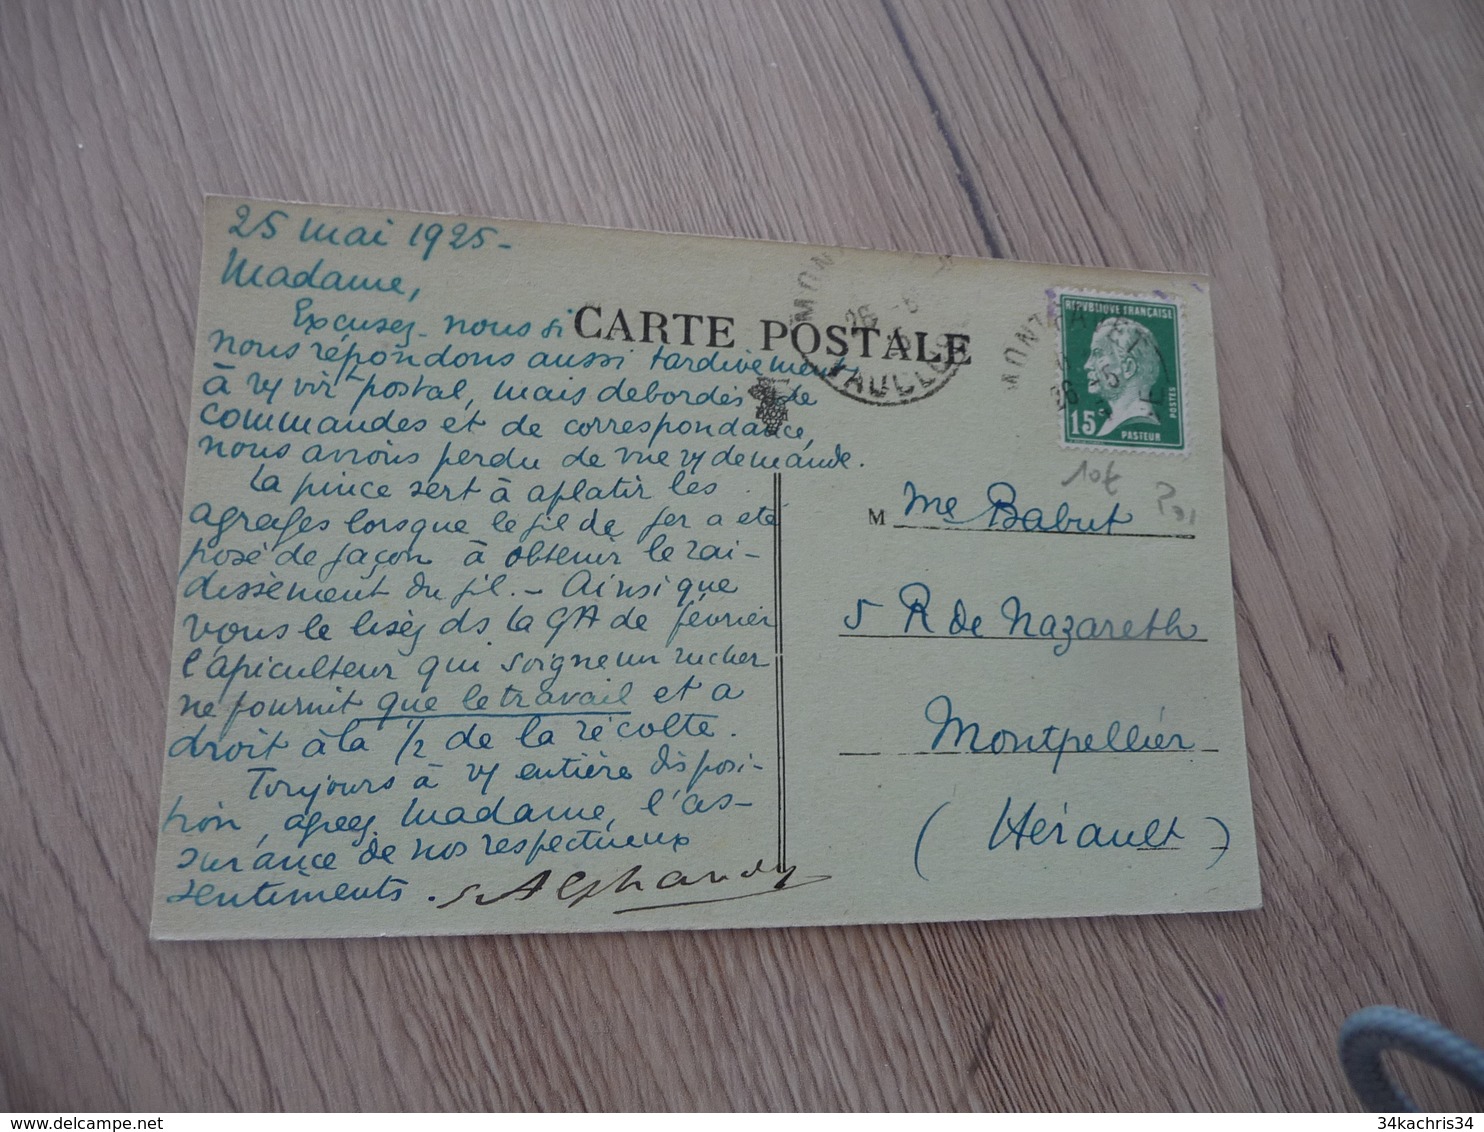 25 mai 1925 -
Madame,
Excusez-nous si
nous répondons aussi tardivement
à vr virt postal, mais debordés de
commandes et de correspondance,
nous avions perdu de vue vr demande.
La pince sert à aplatir les
agrafes lorsque le fil de fer a eté
posé de façon à obtenir le rai-
dissement du fil. - Ainsi que
vous le lisez ds la GA de février
l'apiculteur qui soigne un rucher
ne fournit que le travail et a
droit à la 1/2 de la récolte.
Toujours à vr entière disposi-
tion, agréez Madame, l'as-
surance de nos respectueux
sentiments.
CARTE POSTALE
VAUCLUSE
26 -5
REPUBLIQUE FRANÇAISE
POSTES
15c
PASTEUR
M Me Babut
5 R de Nazareth
Montpellier
(Hérault)
34kachris34